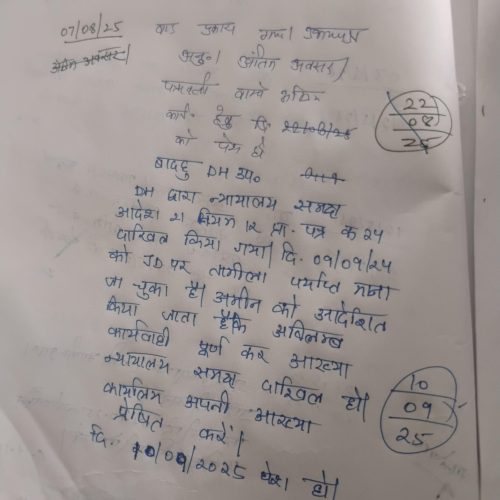 07/08/25 वाद पुकारा गया। उभयपक्ष
अनु०। अंतिम अवसर/
पत्रावली वास्ते अग्रिम
22
कार्य. हेतु दि. 22/08/25
08
25
को पेश हो
बादहु DH उप०
DH द्वारा न्यायालय समक्ष
आदेश 21 नियम 12 प्रा. पत्र क 24
दाखिल किया गया। दि. 09/09/24
को JD पर तामीला पर्याप्त माना
जा चुका है। अमीन को आदेशित
किया जाता है कि अविलम्ब
कार्यवाही पूर्ण कर आख्या
न्यायालय समक्ष दाखिल हो।
10
कार्यालय अपनी आख्या
09
प्रेषित करें।
25
दि. 10/09/2025 पेश हो।